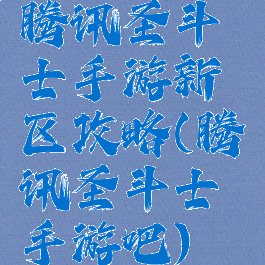 腾讯圣斗
士手游新
区攻略(腾
讯圣斗士
手游吧)